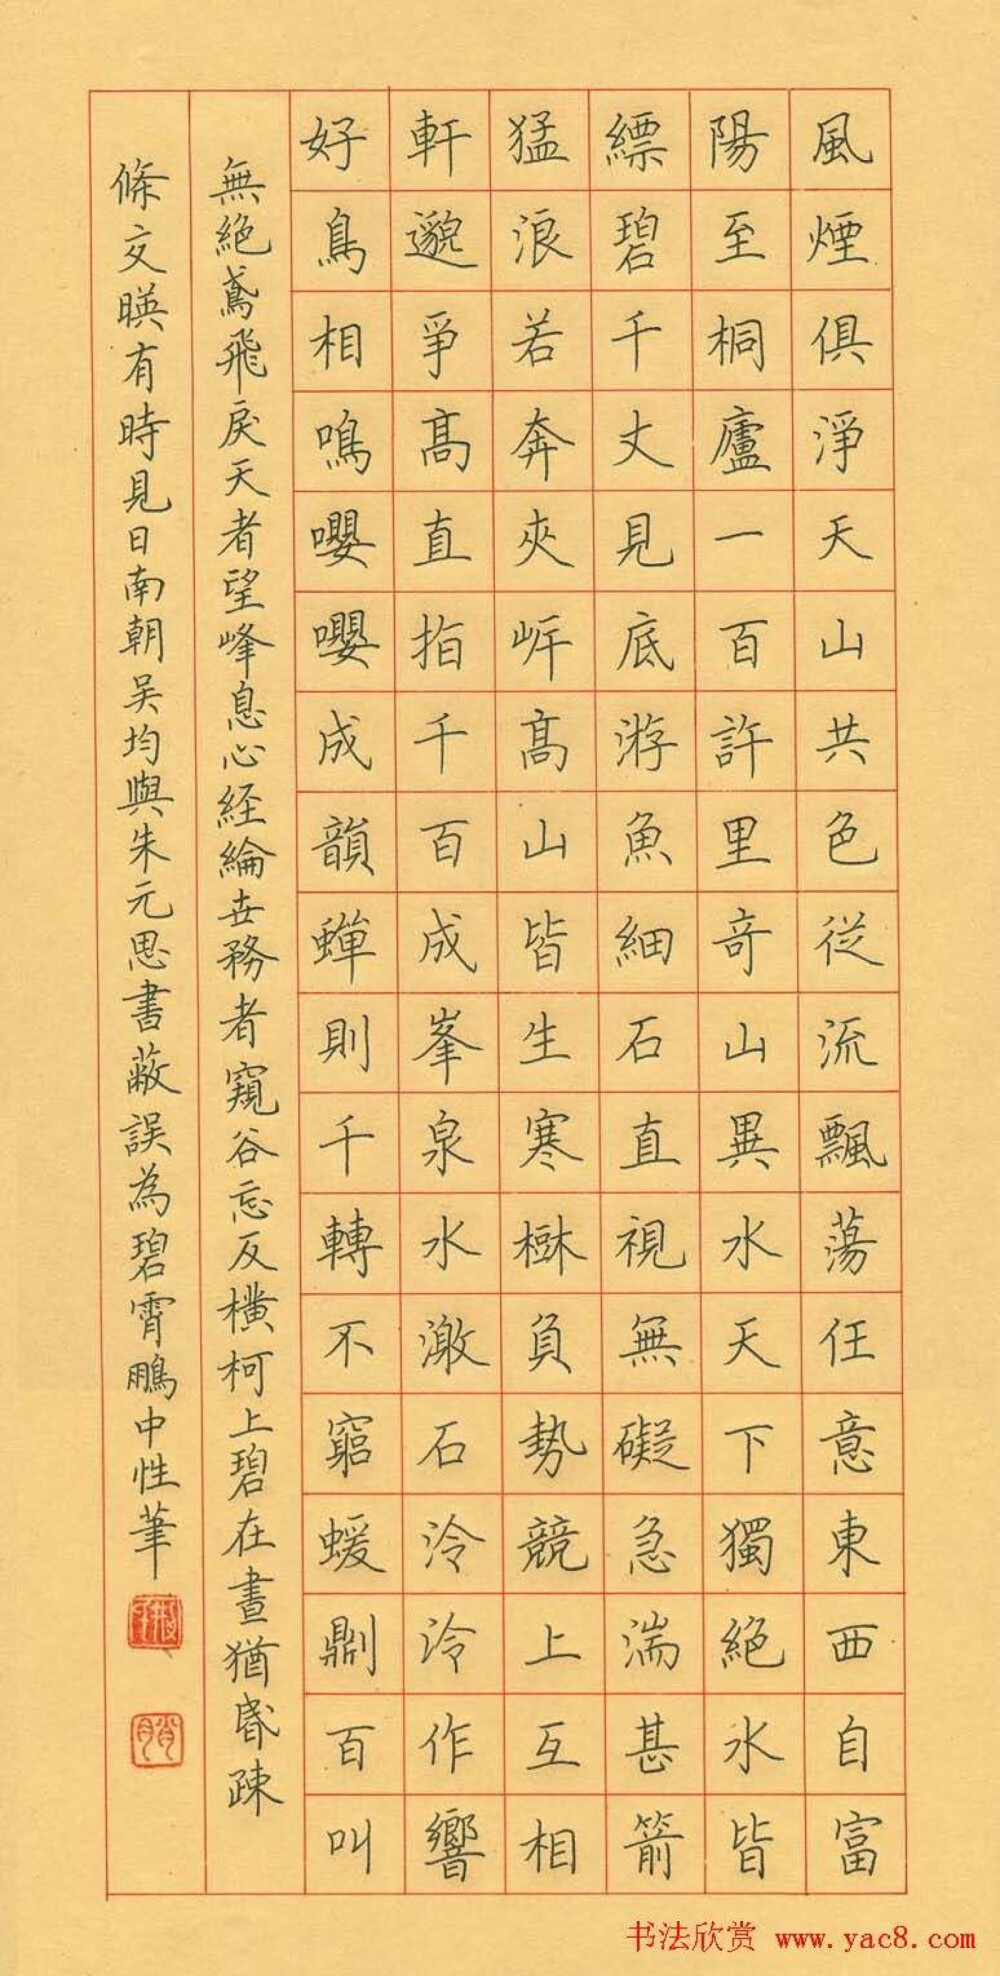 風煙俱淨天山共色從流飄蕩任意東西自富
陽至桐廬一百許里奇山異水天下獨絕水皆
縹碧千丈見底游魚細石直視無礙急湍甚箭
猛浪若奔夾岍高山皆生寒樹負勢競上互相
軒邈爭高直指千百成峯泉水激石泠泠作響
好鳥相鳴嚶嚶成韻蟬則千轉不窮蝯鼎刂百叫
無絕鳶飛戾天者望峰息心經綸世務者窺谷忘反橫柯上碧在晝猶昏疎
條交暎有時見日南朝吳均與朱元思書蔽誤為碧霄鵬中性筆
书法欣赏 www.yac8.com